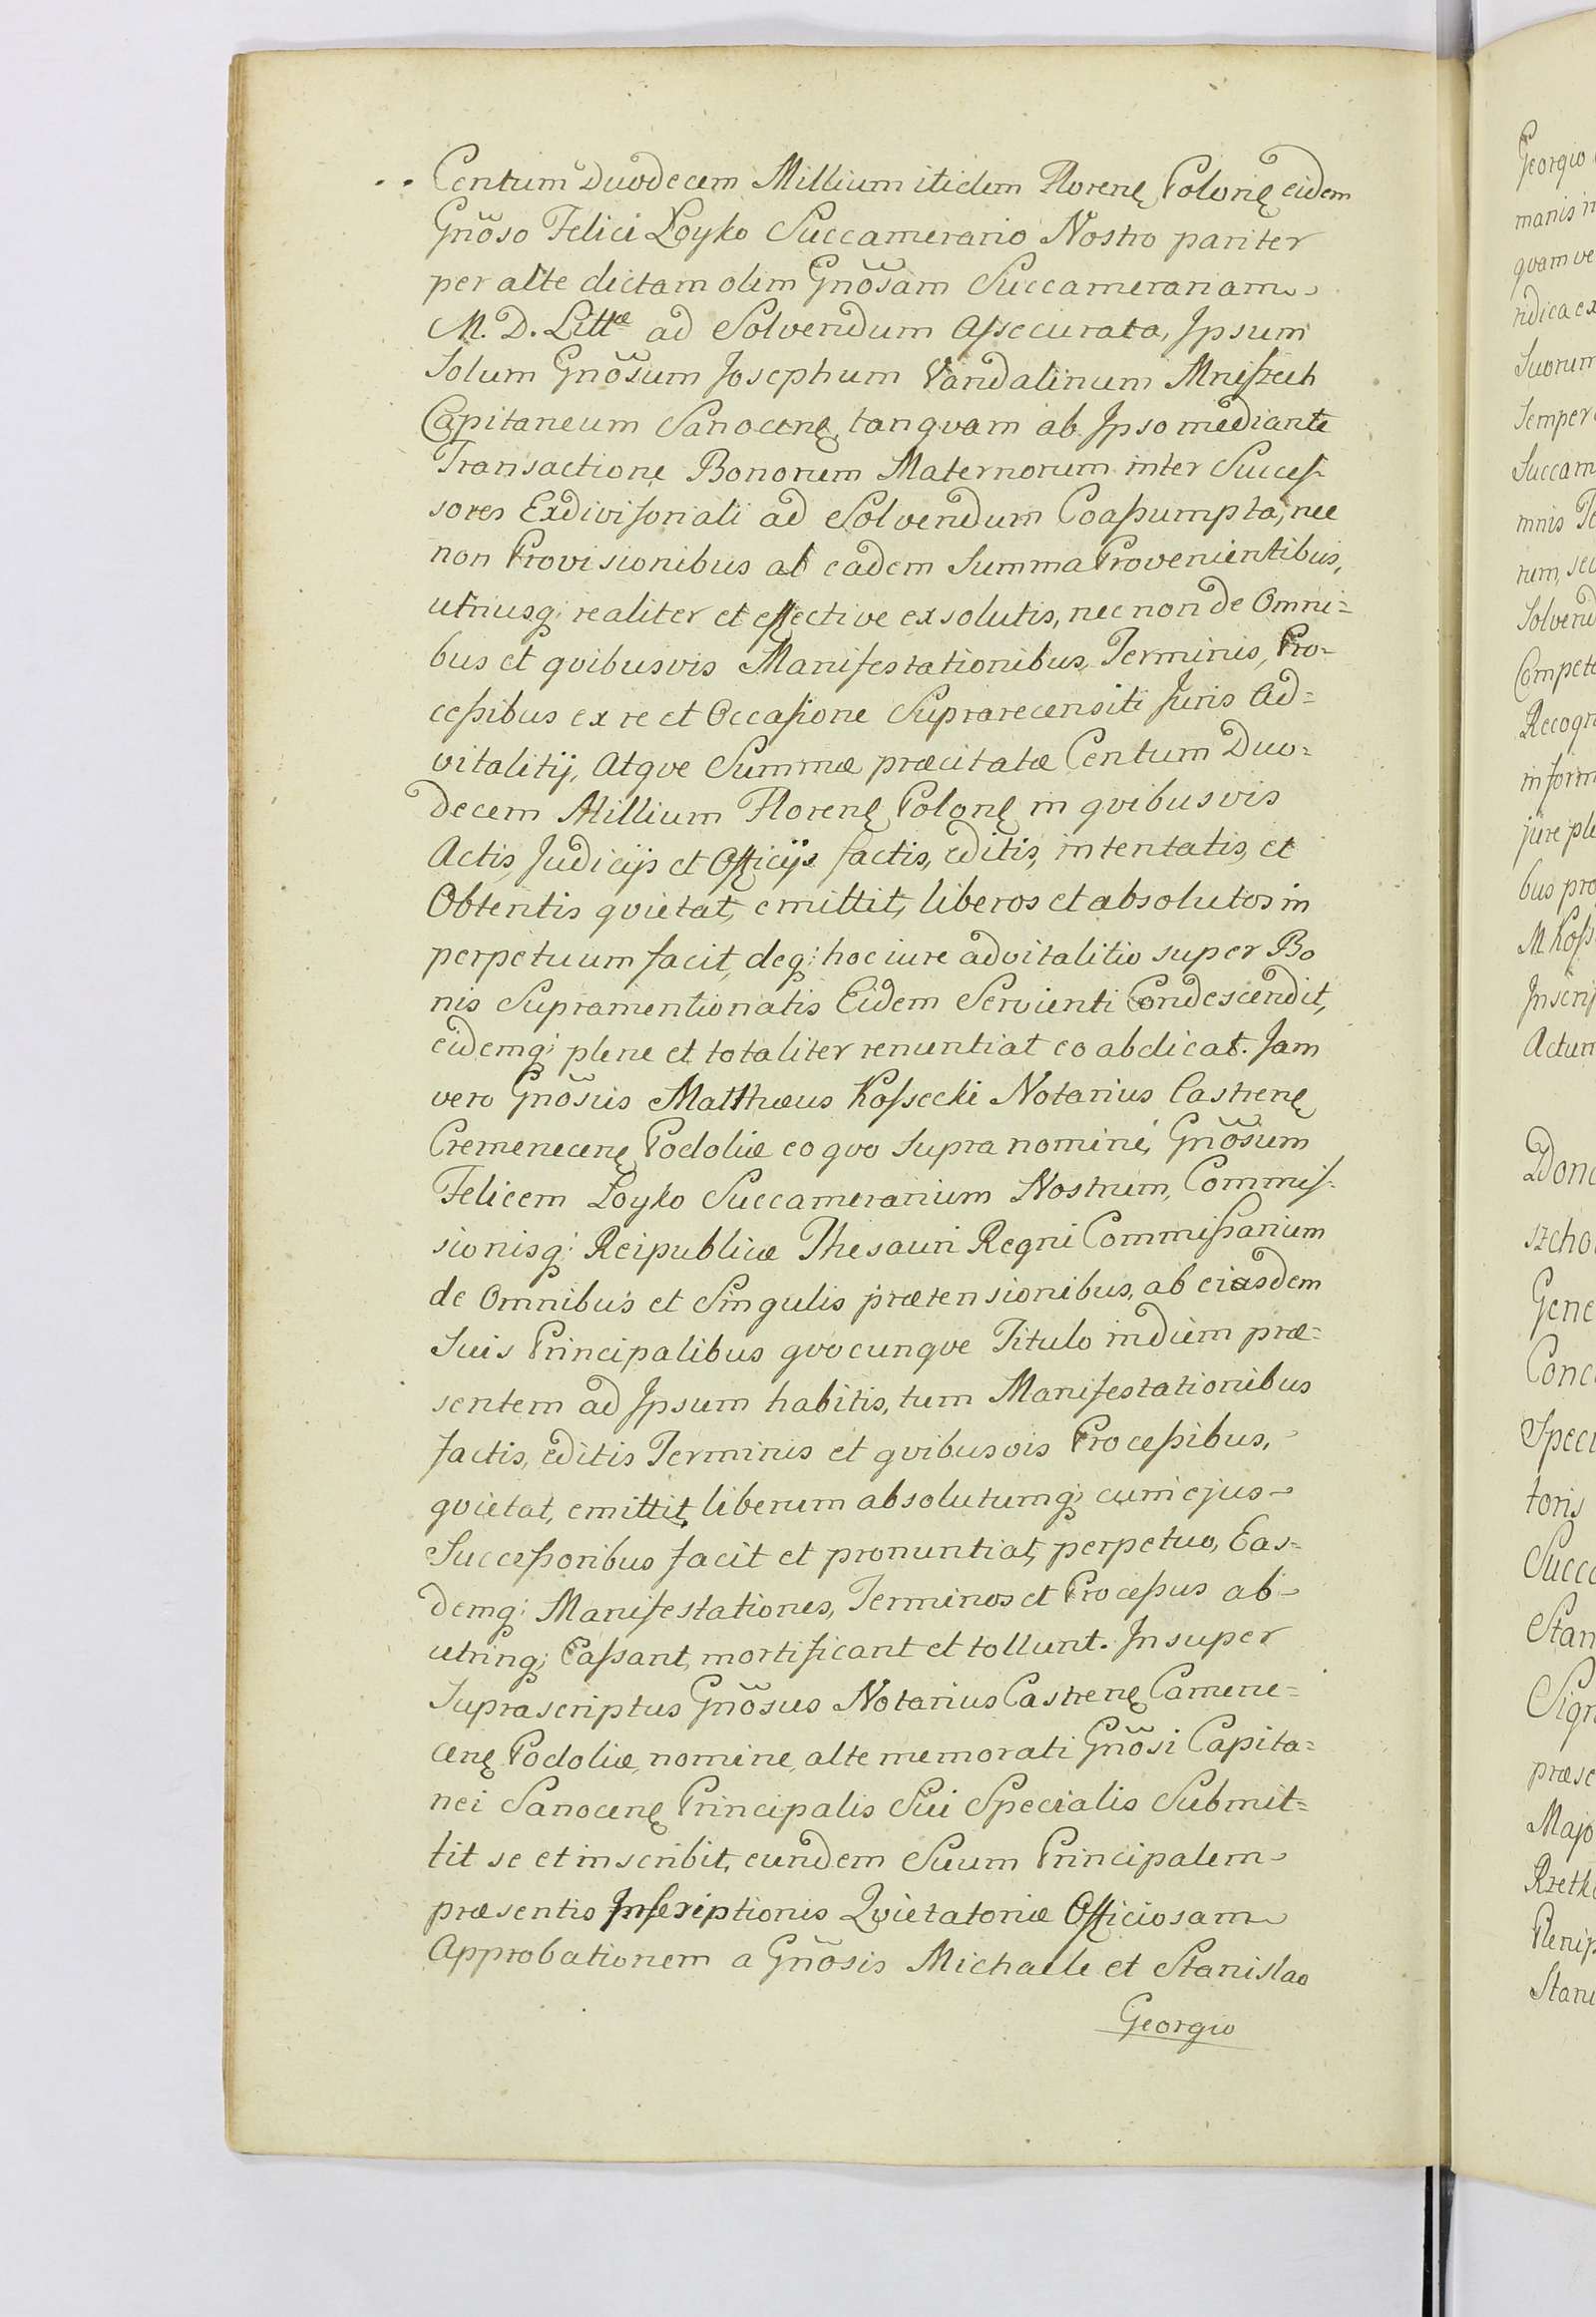 Centum Duodecem Millium itidem Florenę Polonę eidem
Gnõso Felici Łoyko Succamerario Nostro pariter
per alte dictam olim Gnõsam Succamerariam
M. D. Littæ ad Solvendum Assecurata, Ipsum
Solum Gnõsum Josephum Vandalinum Mniszech
Capitaneum Sanocenę, tanqvam ab Ipso mediante
Transactione Bonorum Maternorum inter Succes-
sores Exdivisoriali ad Solvendum Coassumpta, nec
non Provisionibus ab eadem Summa Provenientibus,
utriusq; realiter et effective exsolutis, nec non de Omni=
bus et qvibusvis Manifestationibus, Terminis, Pro-
cessibus ex re et Occasione Suprarecensiti Juris Ad=
vitalitij, Atqve Summæ præcitatæ Centum Duo=
decem Millium Florenę Polonę in qvibusvis
Actis, Judicijs et Officijs factis, editis, intentatis, et
Obtentis qvietat, emittit, liberos et absolutos in
perpetuum facit, deq; hoc iure advitalitio super Bo
nis Supramentionatis Eidem Servienti Condescendit,
eidemq; plene et totaliter renuntiat eo abdicat. Jam
vero Gnõsus Matthæus Kossecki Notarius Castrenę
Cremenecenę Podoliæ eo qvo supra nomine, Gnõsum
Felicem Łoyko Succamerarium Nostrum, Commis-
sionisq; Reipublicæ Thesauri Regni Commissarium
de Omnibus et Singulis prætensionibus, ab eiusdem
Suis Principalibus qvocunqve Titulo indiem præ=
sentem ad Ipsum habitis, tum Manifestationibus
factis, editis Terminis et qvibusvis Processibus,
qvietat, emittit, liberum absolutumq; cum ejus
Successoribus facit et pronuntiat, perpetuo, Eas=
demq; Manifestationes, Terminos et Processus ab
utrinq; Cassant, mortificant et tollunt. Insuper
Suprascriptus Gnõsus Notarius Castrenę Camene=
cenę Podoliæ, nomine, alte memorati Gnõsi Capita=
nei Sanocenę Principalis Sui Specialis Submit=
tit se et inscribit, eundem Suum Principalem
præsentis Inscriptionis Qvietatoriæ Officiosam
Approbationem a Gnõsis Michaele et Stanislao
Georgio